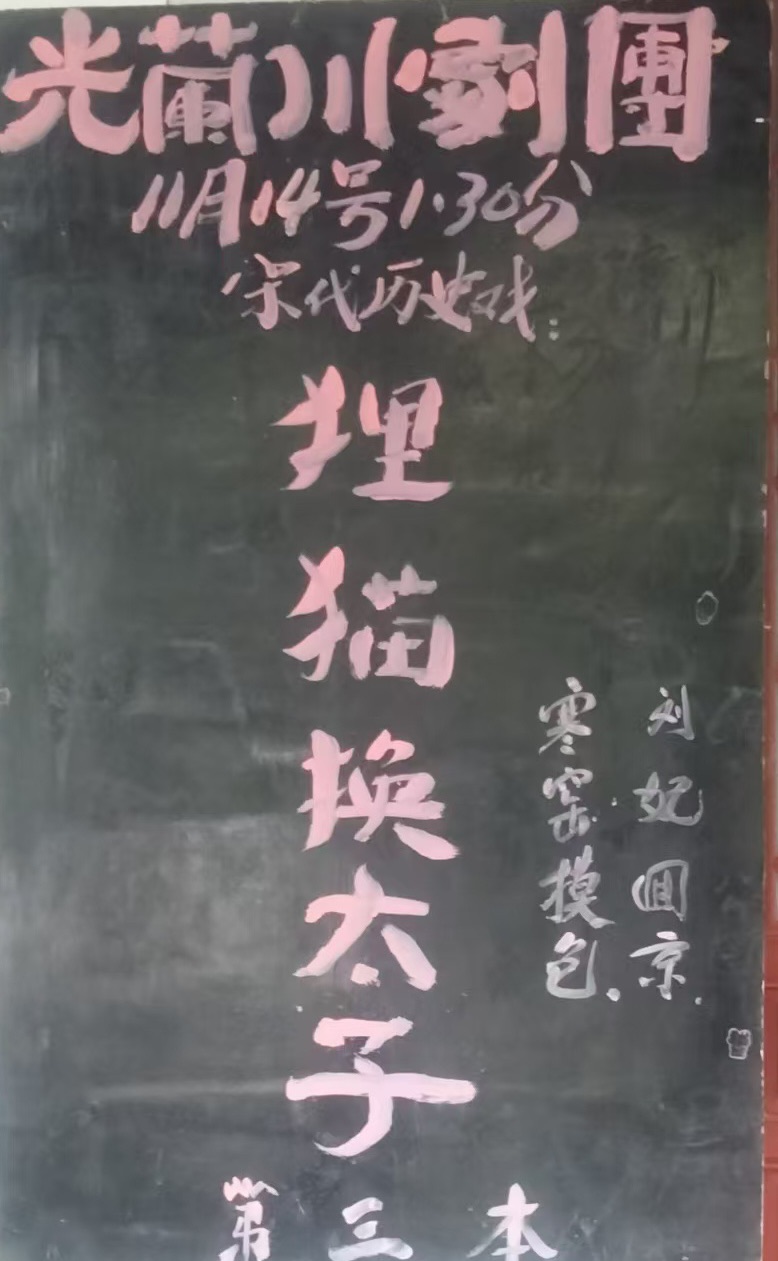 光蘭川劇團
11月14号1.30分
宋代历史戏:
狸猫换太子
刘妃回京.
寒窑摸包.
第三本